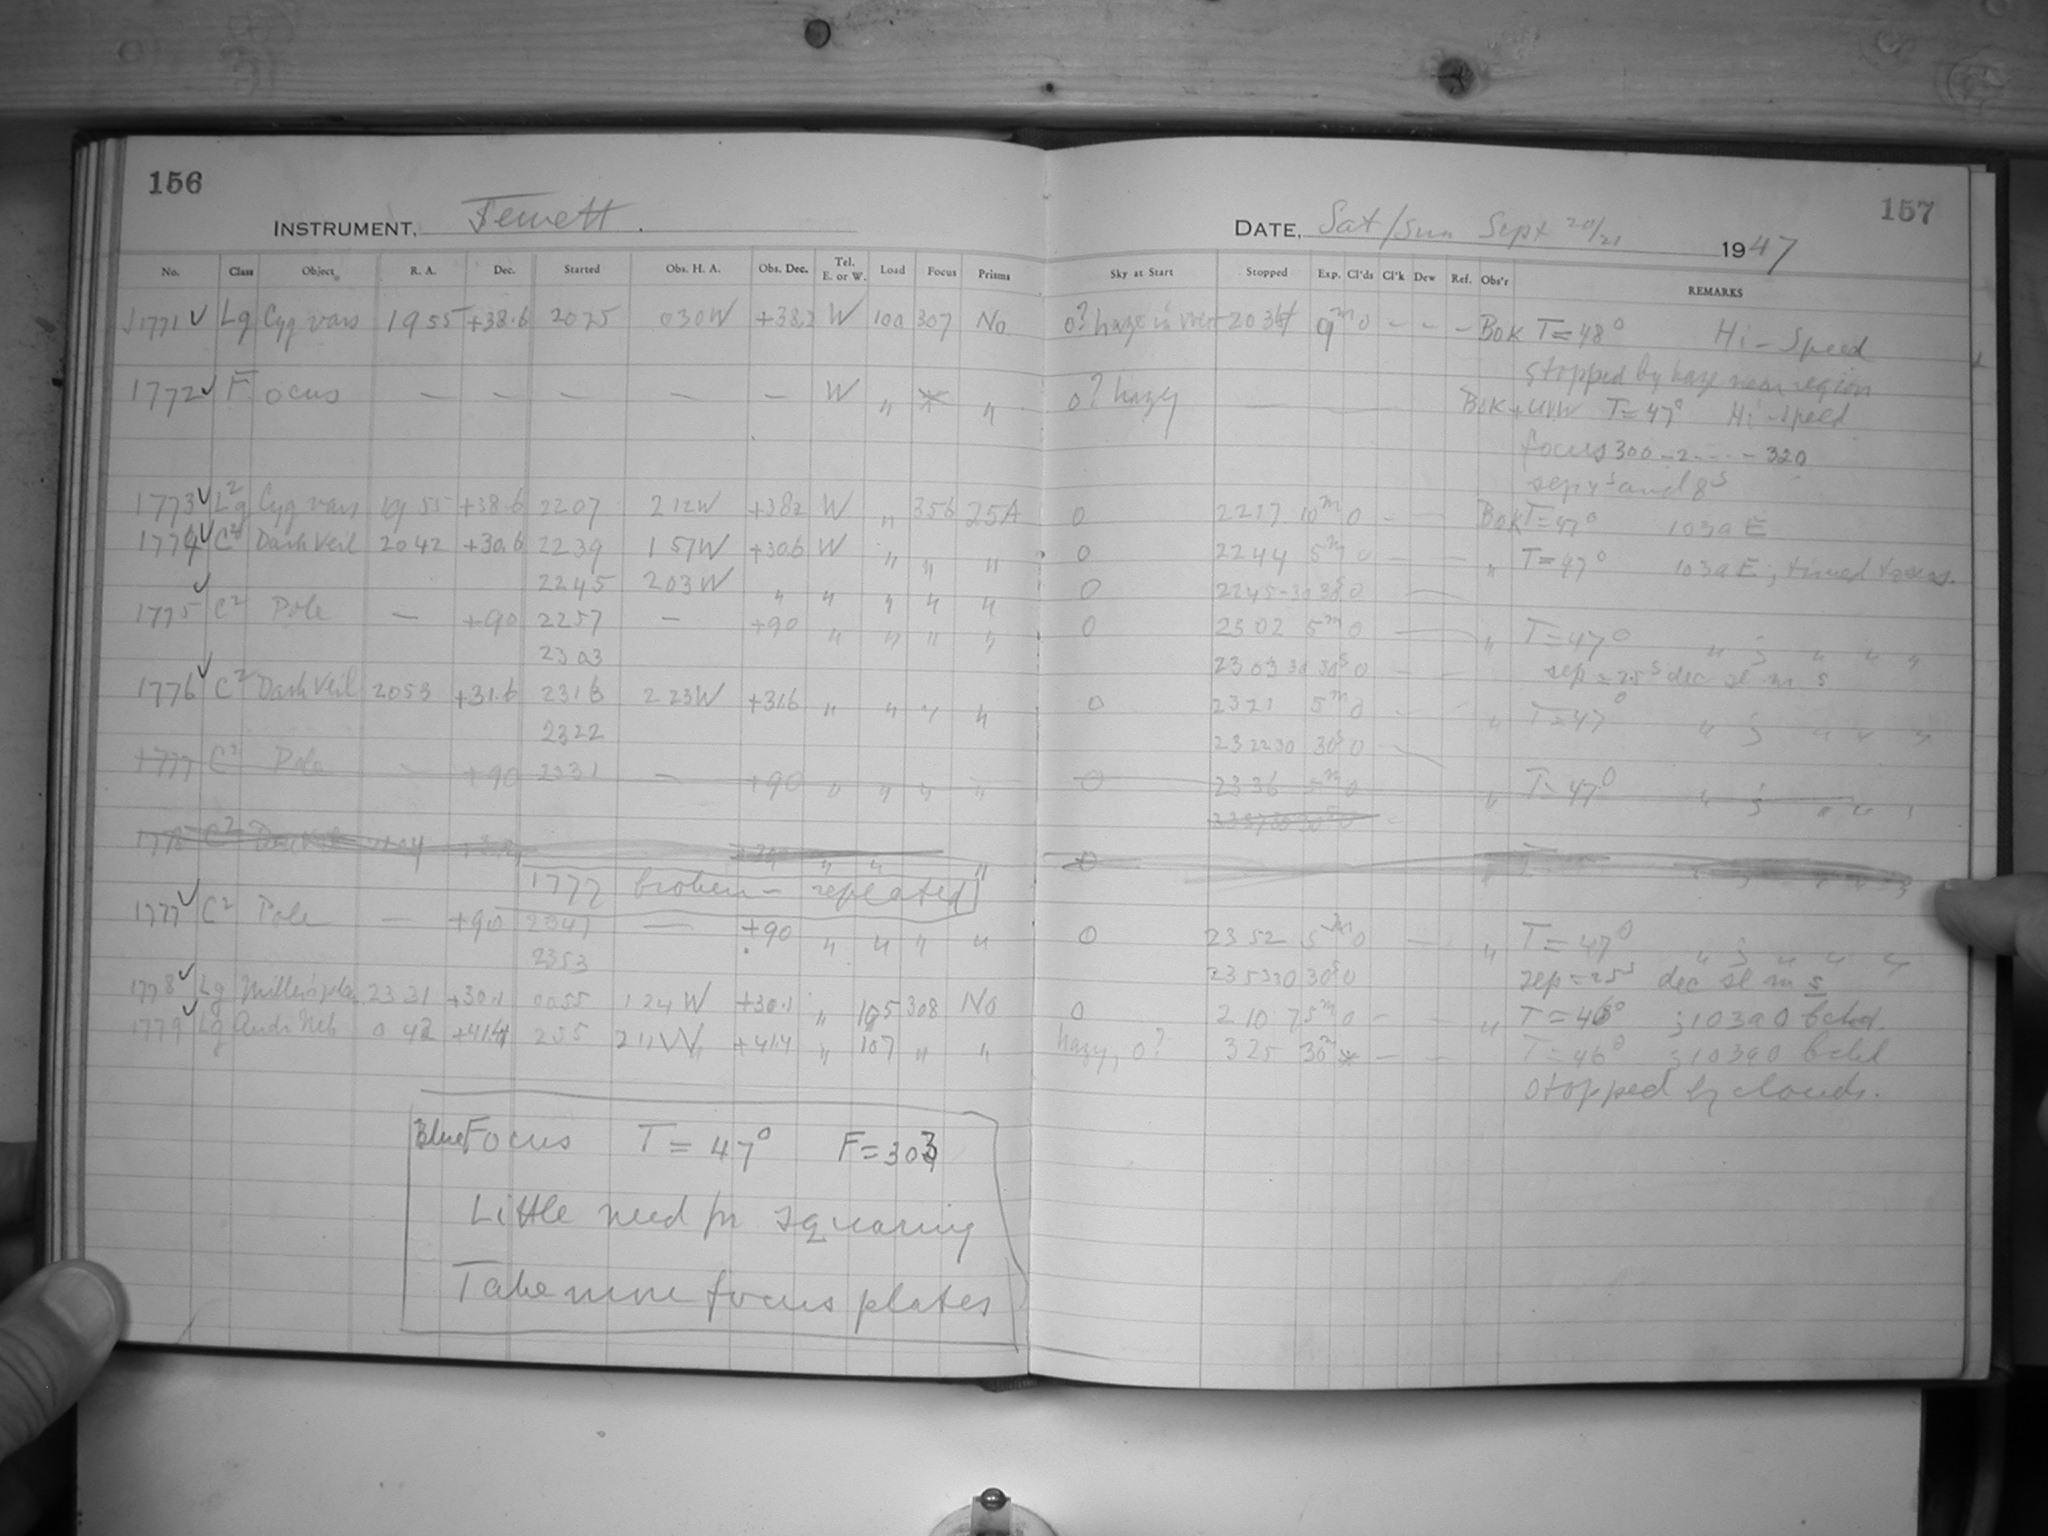 156
INSTRUMENT, Jewett.
No. Class Object R. A. Dec. Started Obs. H. A. Obs. Dec. Tel. E. or W. Load Focus Prisms
J1771 ✓ Lg Cyg vars 1955 +38.6 2025 030W +38.2 W 100 307 No
1772 ✓ Focus — — — — — W " * "
1773 ✓ L²g Cyg vars 1955 +38.6 2207 212W +382 W " 356 25A
1774 ✓ C² Dark Veil 2042 +30.6 2239 157W +30.6 W " " "
2245 203W " " " " "
1775 ✓ C² Pole — +90 2257 — +90 " " " "
2303
1776 ✓ C² Dark Veil 2053 +31.6 2316 223W +31.6 " " " "
2322
1777 C² Pole — +90 2331 — +90 " " " "
1778 C²
1777 broken - repeated
1777 ✓ C² Pole — +90 2347 — +90 " " " "
2353
1778 ✓ Lg 2331 +30.1 0055 124W +30.1 " 105 308 No
1779 ✓ Lg Andr Neb 0 42 +41.4 255 211W +41.4 " 107 " "
Blue Focus T = 47° F = 303
Little need for squaring
Take more focus plates
157
DATE, Sat/Sun Sept 20/21 1947
Sky at Start Stopped Exp. Cl'ds Cl'k Dew Ref. Obs'r REMARKS
0? haze in west 2034 9m 0 - - - BOK T = 48° Hi-Speed
stopped by haze near region
0? hazy BOK + T = 47° Hi-Speed
focus 300 - 2 - - - - 320
sep 4s and 8s
0 2217 10m 0 - - BOK T = 47° 103a E
0 2244 5m 0 - - " T = 47° 103a E;
0 2245-30 30s 0
0 2302 5m 0 " T = 47° " ; " " "
2303 30 30s 0 - - sep = 25s dec sl m s
0 2321 5m 0 - - " T = 47° " ; " " "
232230 30s 0
0 2336 5m 0 " T = 47° " ; " " "
0
0 2352 5m 0 - " T = 47° " ; " " "
235330 30s 0 sep = 25s dec sl m s
0 210 75m 0 - - " T = 46° ; 103a0 bckd.
hazy, 0? 325 30m * - - T = 46° ; 103a0 bckd
stopped by clouds.